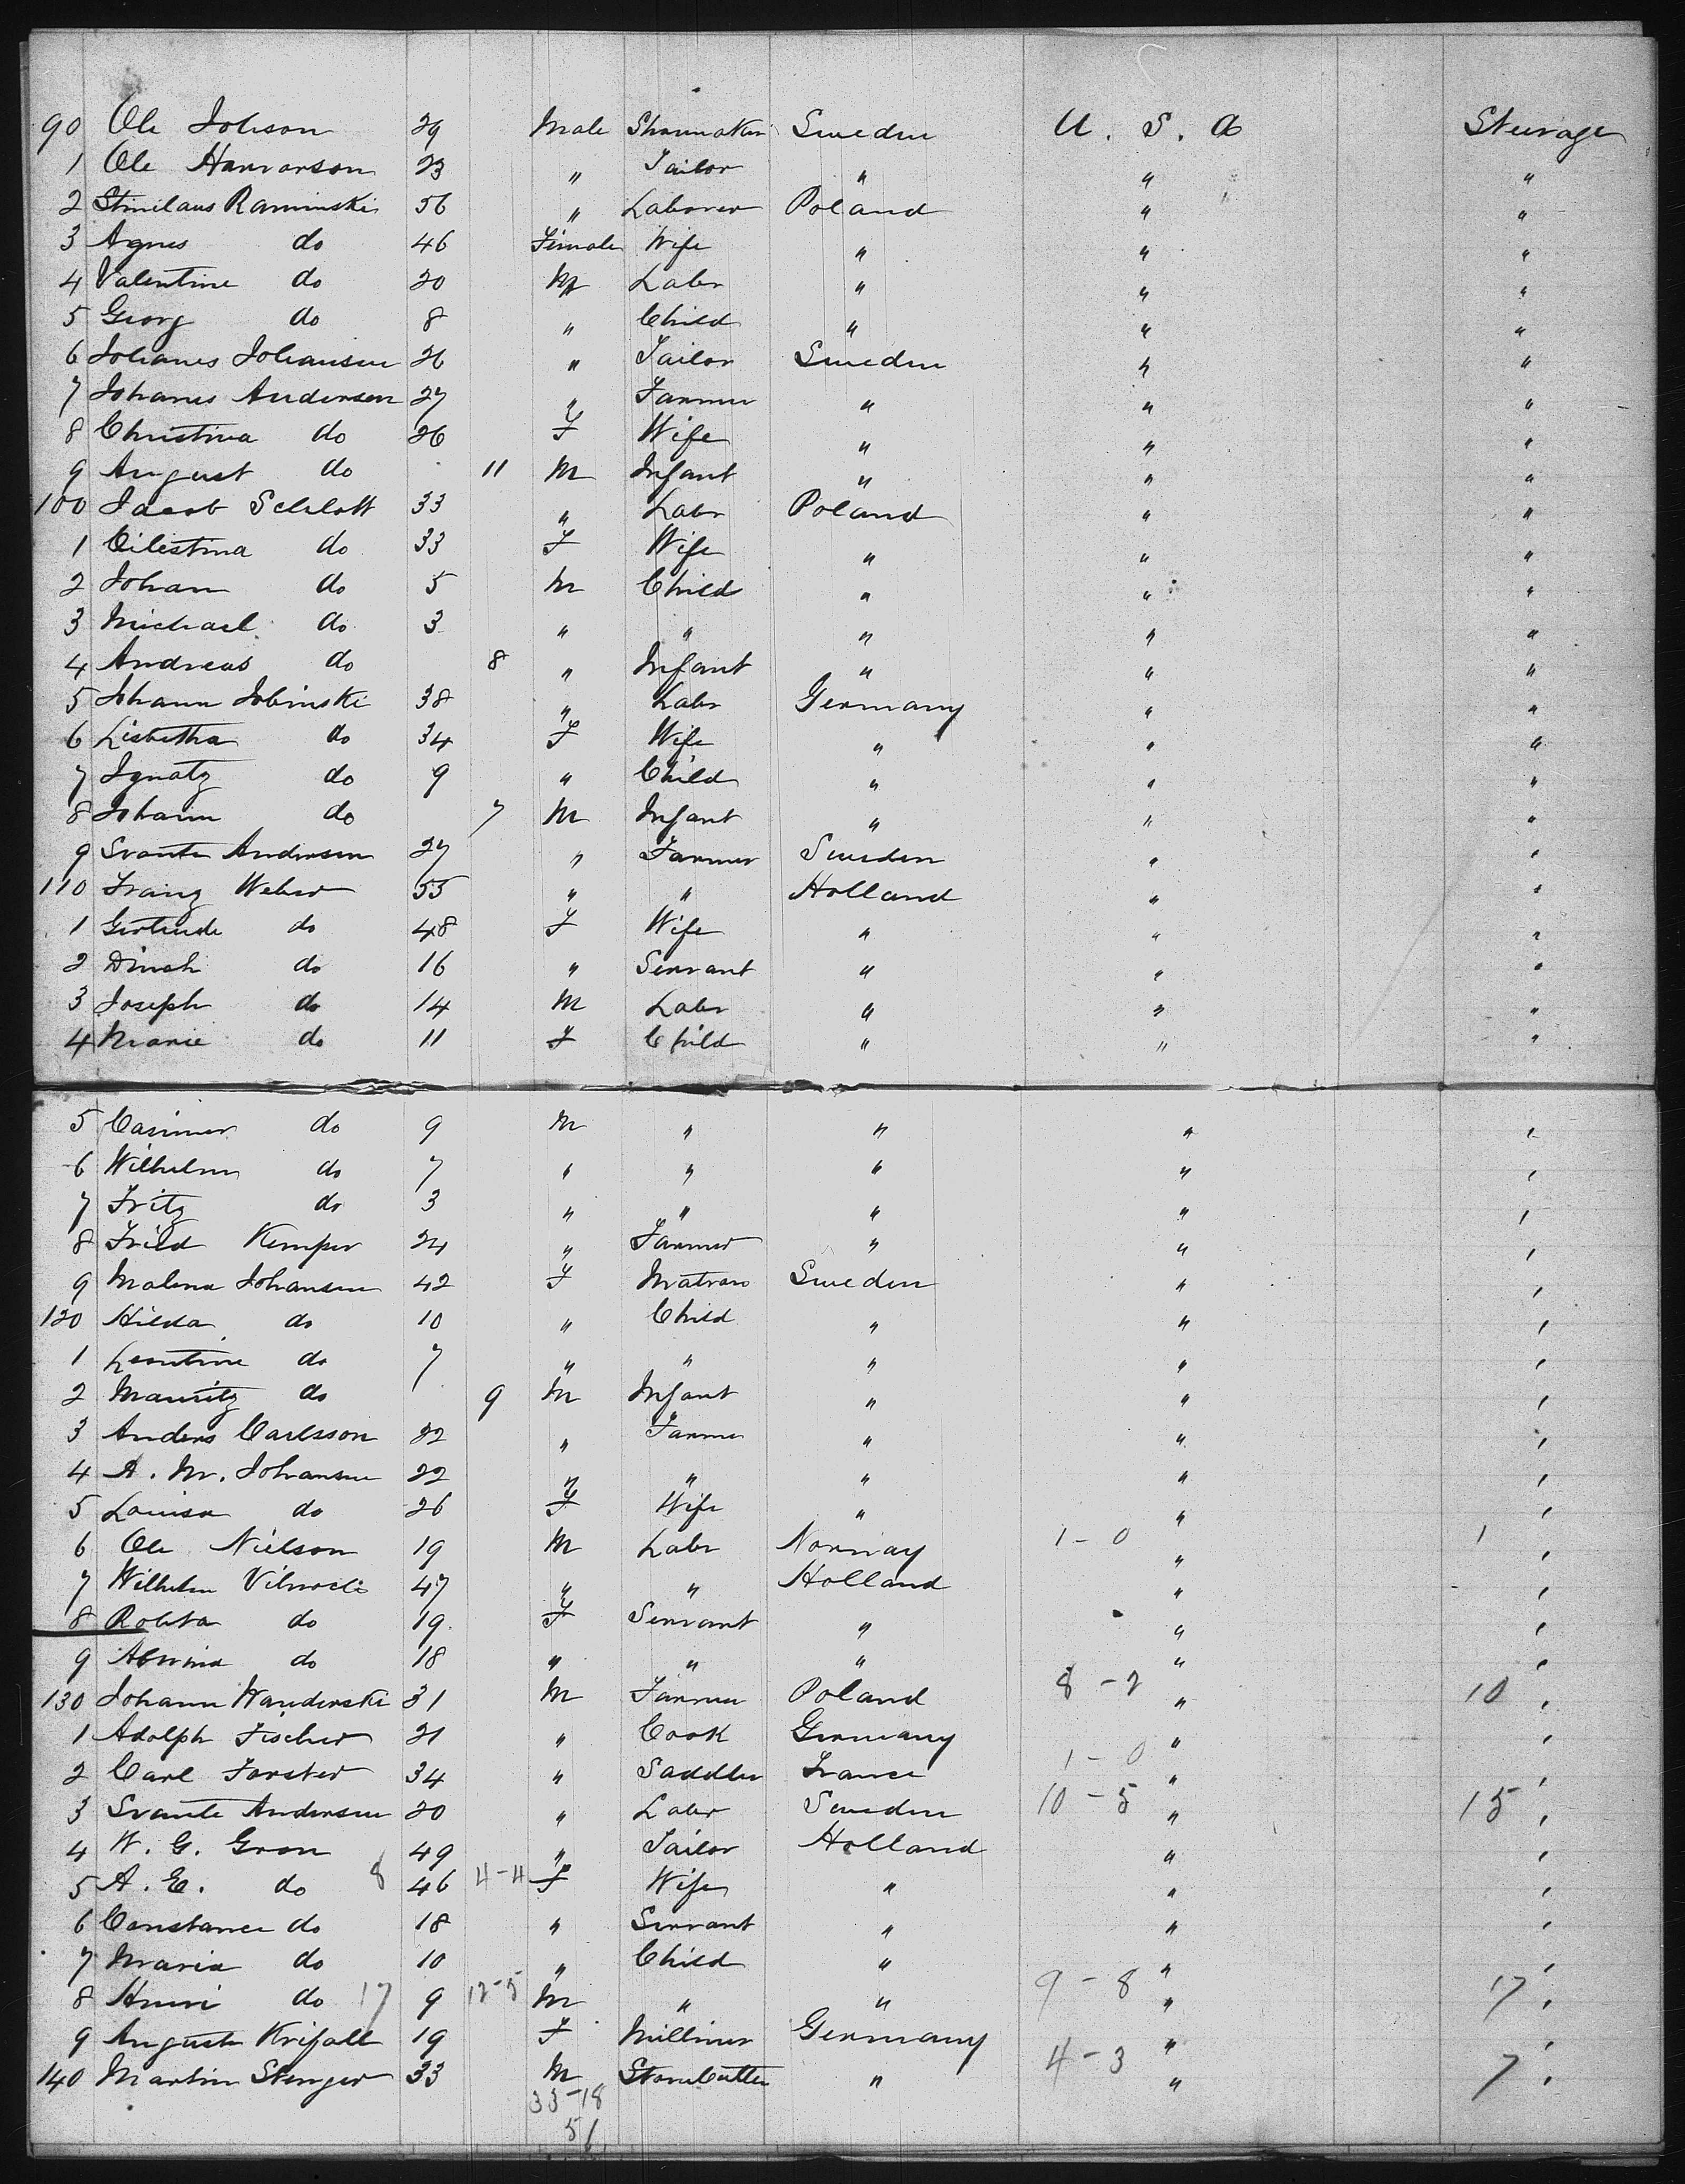 90 Ole Johson 29 Male Shoemaker Sweden U. S. A Steerage
1 Ole Harvorson 23 " Tailor " " "
2 Stinilaus Raminski 56 " Laborer Poland " "
3 Agnes do 46 Female Wife " " "
4 Valentine do 20 M Labr " " "
5 Georg do 8 " Child " " "
6 Johanes Johansen 26 " Tailor Sweden " "
7 Johanes Andersen 27 " Farmer " " "
8 Christina do 26 F Wife " " "
9 August do 11 M Infant " " "
100 Jacob Schlott 33 " Labr Poland " "
1 Cilestina do 33 F Wife " " "
2 Johan do 5 M Child " " "
3 Michael do 3 " " " " "
4 Andreas do 8 " Infant " " "
5 Johann Jobinski 38 " Labr Germany " "
6 Lisbetha do 34 F Wife " " "
7 Ignatz do 9 " Child " " "
8 Johann do 7 M Infant " " "
9 Svante Andersen 27 " Farmer Sweden " "
110 Franz Weber 55 " " Holland " "
1 Gertrude do 48 F Wife " " "
2 Dinah do 16 " Servant " " "
3 Joseph do 14 M Labr " " "
4 Marie do 11 F Child " " "
5 Casimer do 9 M " " " "
6 Wilhelm do 7 " " " " "
7 Fritz do 3 " " " " "
8 Fried Kemper 24 " Farmer " " "
9 Malena Johansen 42 F Matron Sweden " "
120 Hilda do 10 " Child " " "
1 Leontine do 7 " " " " "
2 Mauritz do 9 M Infant " " "
3 Anders Carlsson 22 " Farmer " " "
4 A. M. Johansen 22 " " " " "
5 Louisa do 26 F Wife " " "
6 Ole Nielson 19 M Labr Norway 1-0 " 1 "
7 Wilhelm 47 " " Holland " "
8 Robta do 19 F Servant " " "
9 Alwina do 18 " " " " "
130 Johann Wanderski 31 M Farmer Poland 8-2 " 10 "
1 Adolph Fischer 21 " Cook Germany " "
2 Carl Forster 34 " Saddler France 1-0 " "
3 Svante Andersen 20 " Labr Sweden 10-5 " 15 "
4 W. G. Gron 49 " Tailor Holland " "
5 A. E. do 8 46 4-4 F Wife " " "
6 Constance do 18 " Servant " " "
7 Maria do 10 " Child " " "
8 Henri do 17 9 12-5 M " " 9-8 " 17 "
9 Auguste Krifall 19 F Milliner Germany " "
140 Martin Stenger 33 M StoneCutter " 4-3 " 7 "
33-18
51